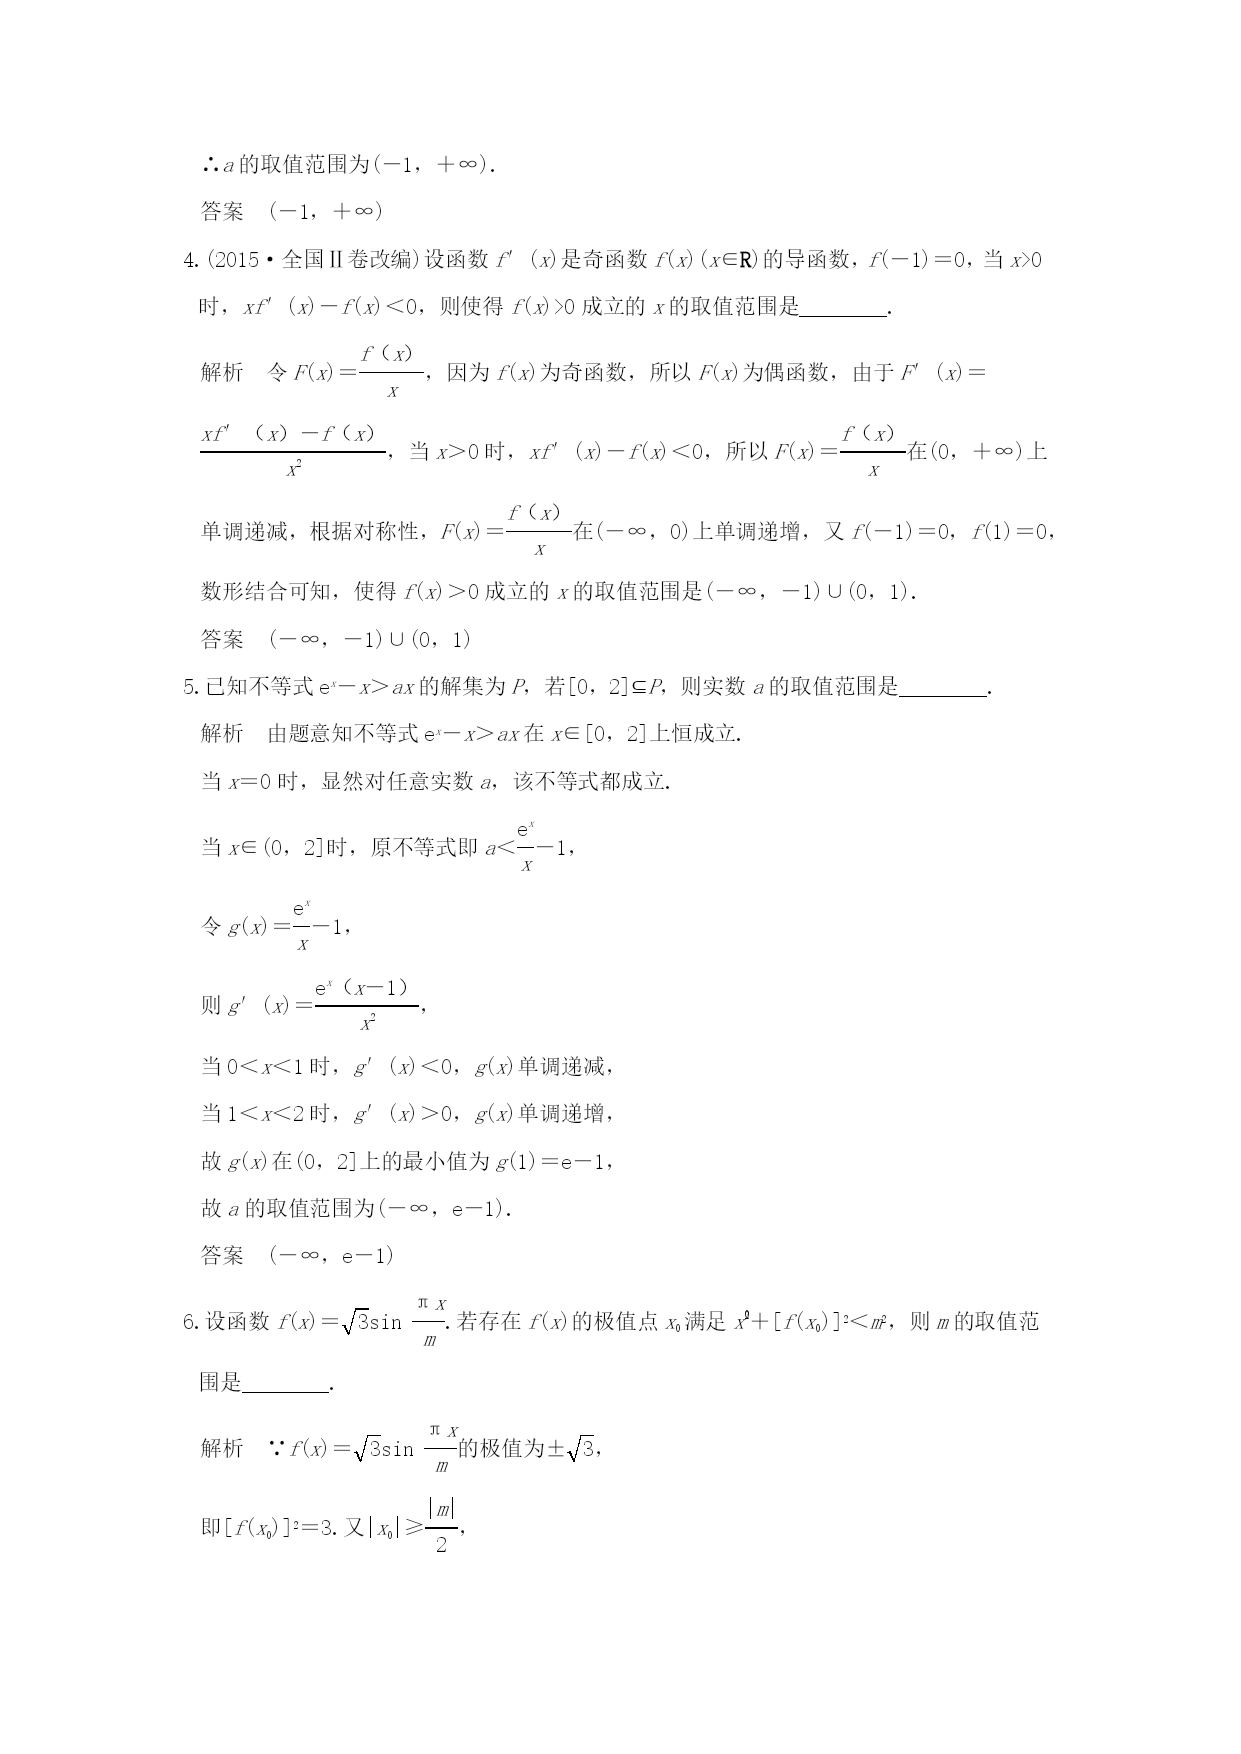 ∴a的取值范围为(－1，＋∞).
答案　(－1，＋∞)
4.(2015·全国Ⅱ卷改编)设函数f′(x)是奇函数f(x)(x∈R)的导函数，f(－1)＝0，当x>0
时，xf′(x)－f(x)＜0，则使得f(x)>0成立的x的取值范围是________.
解析　令F(x)＝f（x）/x，因为f(x)为奇函数，所以F(x)为偶函数，由于F′(x)＝
xf′（x）－f（x）/x²，当x＞0时，xf′(x)－f(x)＜0，所以F(x)＝f（x）/x在(0，＋∞)上
单调递减，根据对称性，F(x)＝f（x）/x在(－∞，0)上单调递增，又f(－1)＝0，f(1)＝0，
数形结合可知，使得f(x)＞0成立的x的取值范围是(－∞，－1)∪(0，1).
答案　(－∞，－1)∪(0，1)
5.已知不等式eˣ－x＞ax的解集为P，若[0，2]⊆P，则实数a的取值范围是________.
解析　由题意知不等式eˣ－x＞ax在x∈[0，2]上恒成立.
当x＝0时，显然对任意实数a，该不等式都成立.
当x∈(0，2]时，原不等式即a＜eˣ/x－1，
令g(x)＝eˣ/x－1，
则g′(x)＝eˣ（x－1）/x²，
当0＜x＜1时，g′(x)＜0，g(x)单调递减，
当1＜x＜2时，g′(x)＞0，g(x)单调递增，
故g(x)在(0，2]上的最小值为g(1)＝e－1，
故a的取值范围为(－∞，e－1).
答案　(－∞，e－1)
6.设函数f(x)＝√3sin πx/m.若存在f(x)的极值点x₀满足x²₀＋[f(x₀)]²＜m²，则m的取值范
围是________.
解析　∵f(x)＝√3sin πx/m的极值为±√3，
即[f(x₀)]²＝3.又|x₀|≥|m|/2，